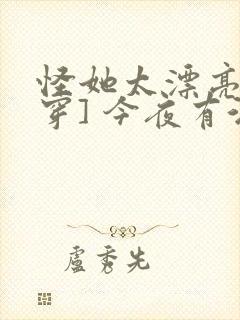 怪她太漂亮
穿] 今夜有
盧秀先